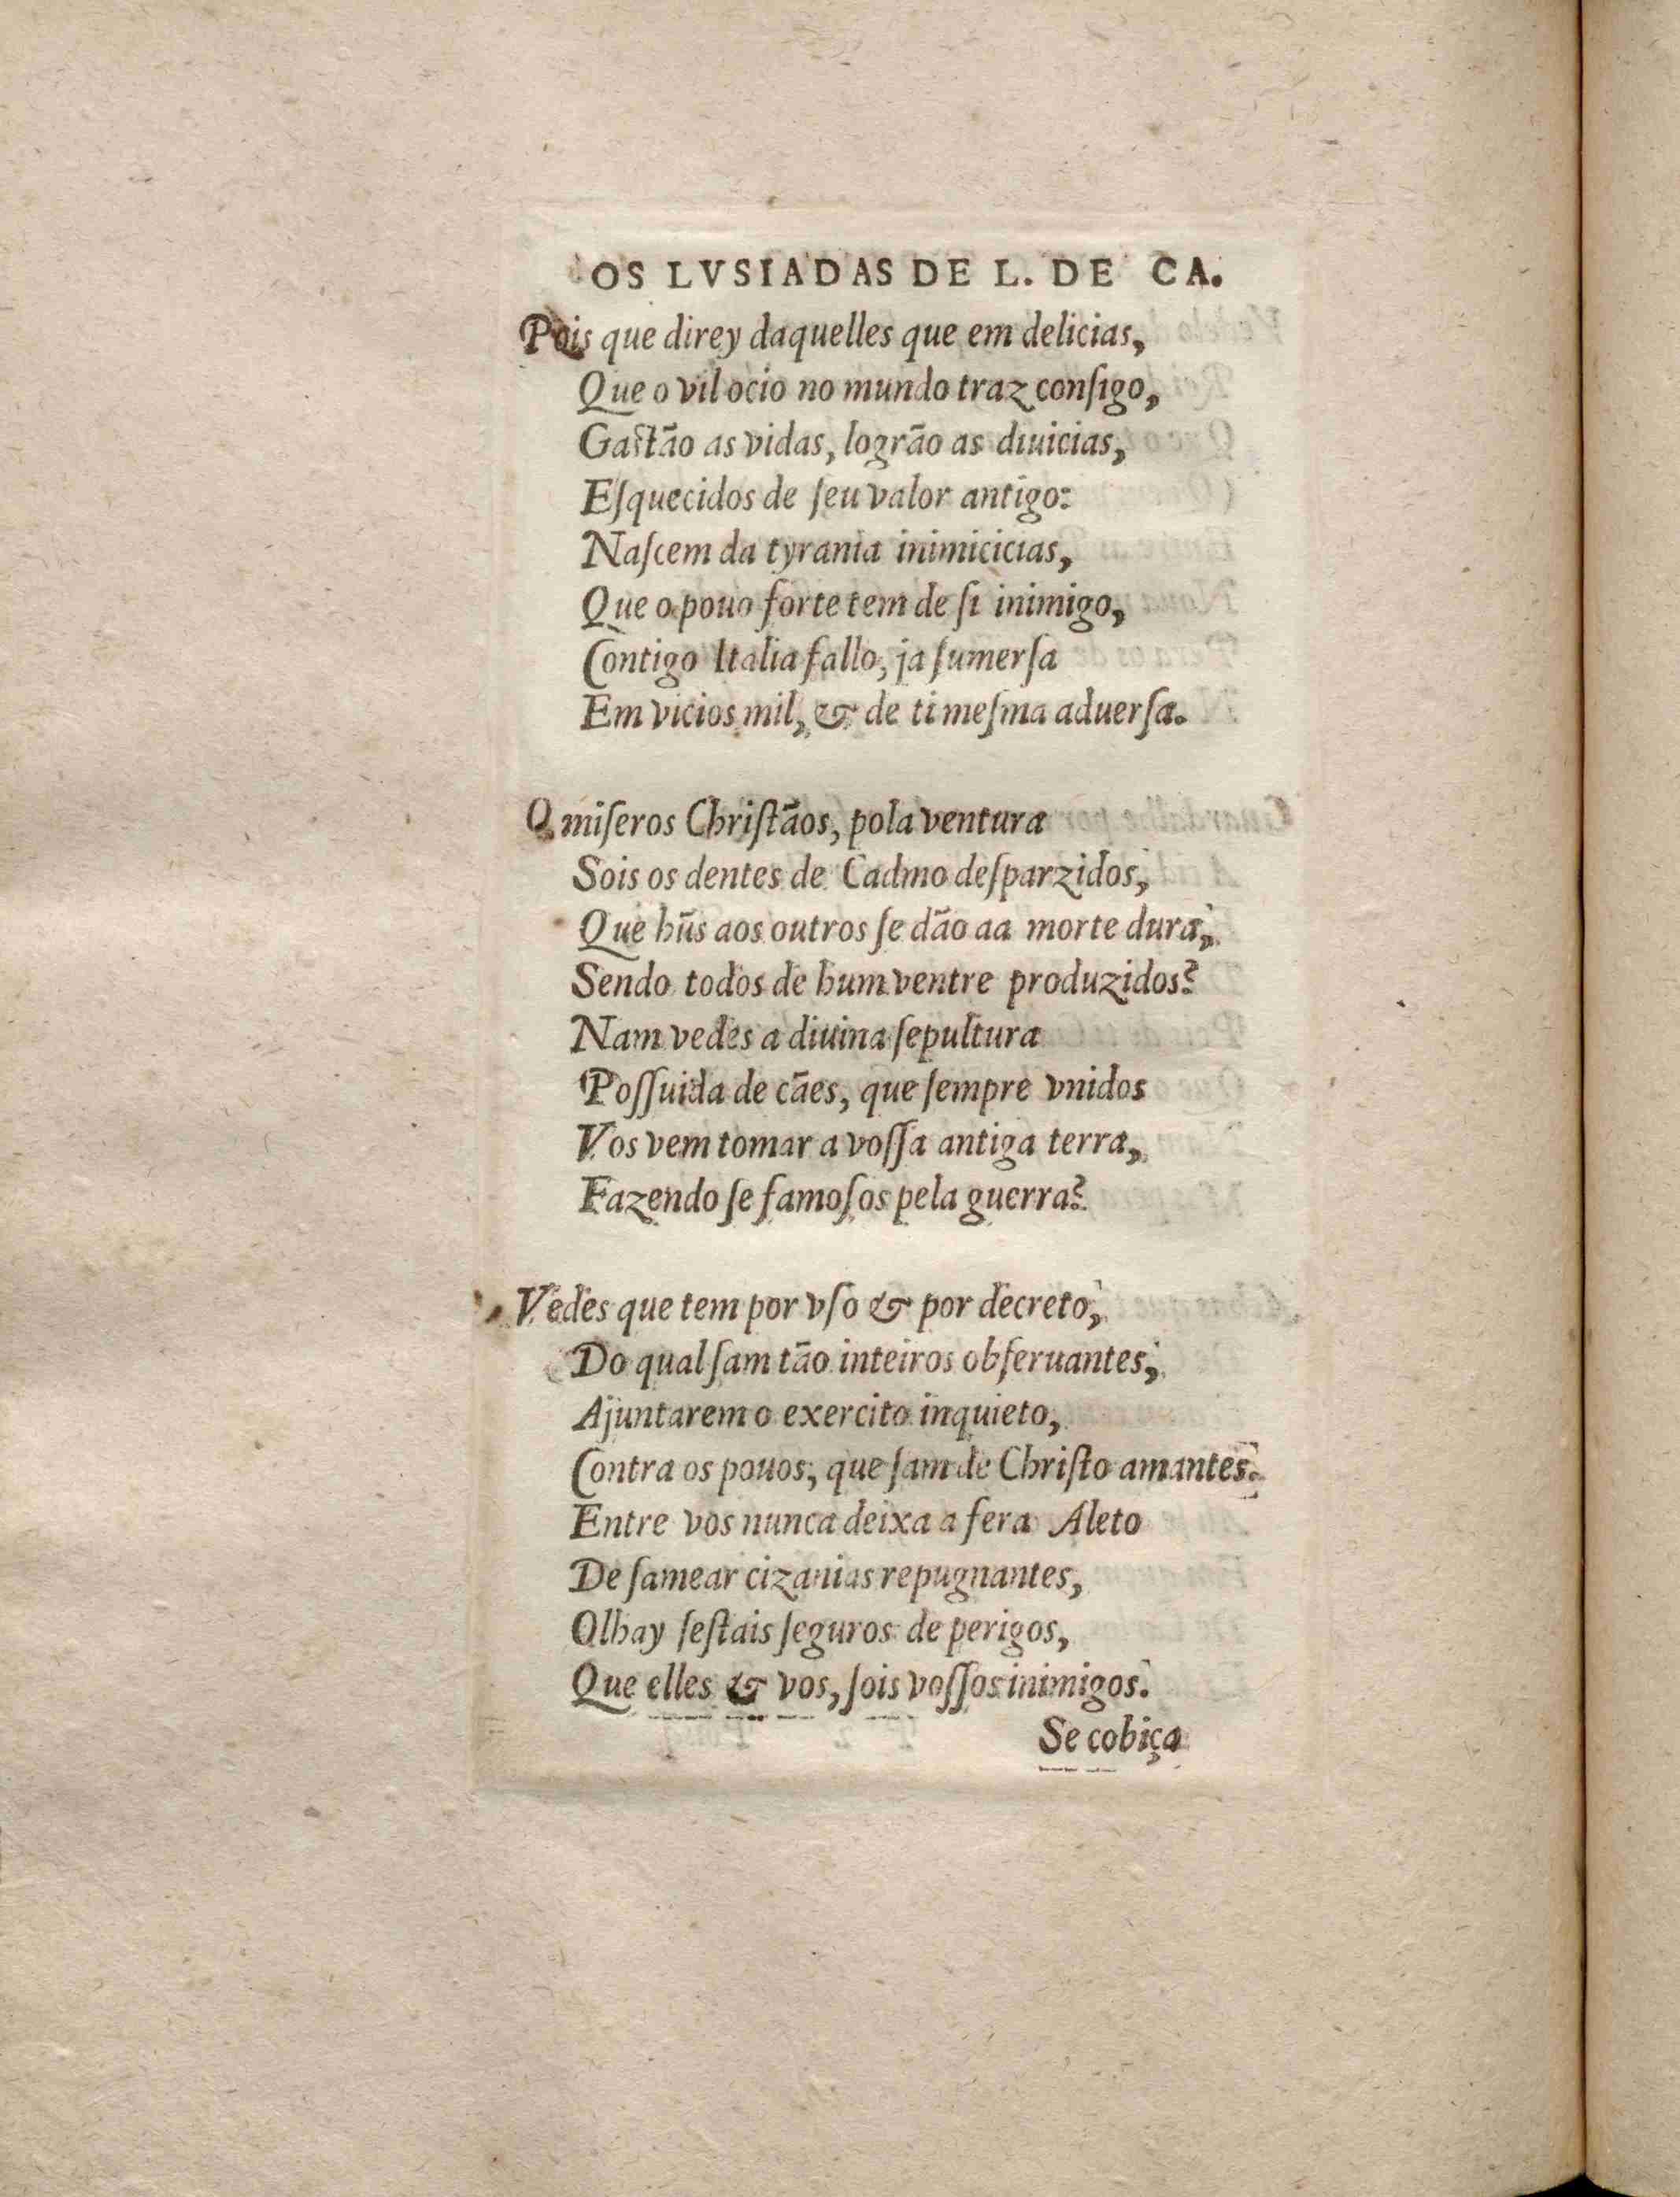 OS LVSIADAS DE L. DE CA.
Pois que direy daquelles que em delicias,
Que o vil ocio no mundo traz conſigo,
Gaſtão as vidas, logrão as diuicias,
Eſquecidos de ſeu valor antigo:
Naſcem da tyrania inimicicias,
Que o pouo forte tem de ſi inimigo,
Contigo Italia fallo, ja ſumerſa
Em vicios mil, & de ti meſma aduerſa.
O miſeros Chriſtãos, pola ventura
Sois os dentes de Cadmo deſparzidos,
Que hũs aos outros ſe dão aa morte dura,
Sendo todos de hum ventre produzidos?
Nam vedes a diuina ſepultura
Poſſuida de cães, que ſempre vnidos
Vos vem tomar a voſſa antiga terra,
Fazendo ſe famoſos pela guerra?
Vedes que tem por vſo & por decreto,
Do qual ſam tão inteiros obſeruantes,
Ajuntarem o exercito inquieto,
Contra os pouos, que ſam de Chriſto amantes.
Entre vos nunca deixa a fera Aleto
De ſamear cizanias repugnantes,
Olhay ſeſtais ſeguros de perigos,
Que elles & vos, ſois voſſos inimigos.
Se cobiça